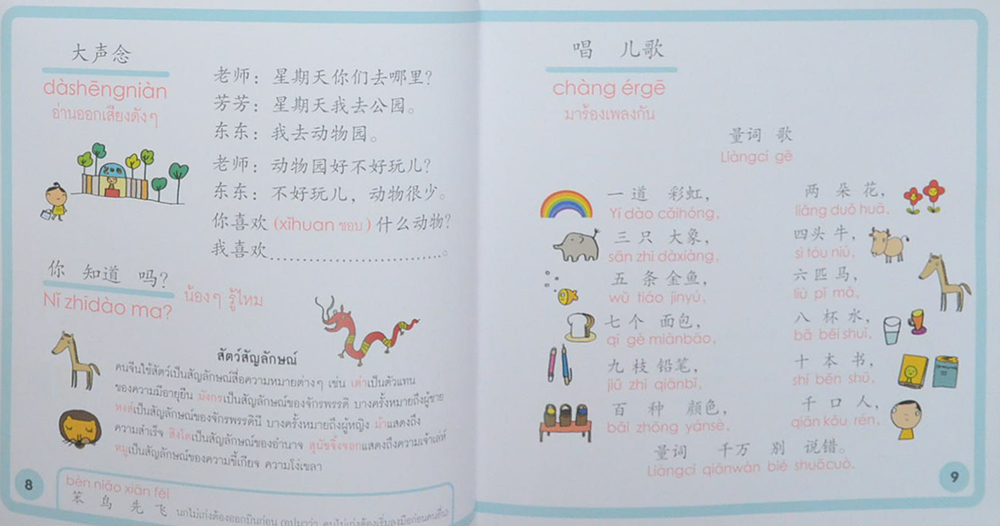 大声念
dàshēngniàn
อ่านออกเสียงดังๆ
老师：星期天你们去哪里？
芳芳：星期天我去公园。
东东：我去动物园。
老师：动物园好不好玩儿？
东东：不好玩儿，动物很少。
你喜欢 (xǐhuan ชอบ) 什么动物？
我喜欢.......................................。
你 知道 吗？
Nǐ zhīdào ma?
น้องๆ รู้ไหม
สัตว์สัญลักษณ์
คนจีนใช้สัตว์เป็นสัญลักษณ์สื่อความหมายต่างๆ เช่น เต่าเป็นตัวแทน
ของความมีอายุยืน มังกรเป็นสัญลักษณ์ของจักรพรรดิ บางครั้งหมายถึงผู้ชาย
หงส์เป็นสัญลักษณ์ของจักรพรรดินี บางครั้งหมายถึงผู้หญิง ม้าแสดงถึง
ความสำเร็จ สิงโตเป็นสัญลักษณ์ของอำนาจ สุนัขจิ้งจอกแสดงถึงความเจ้าเล่ห์
หมูเป็นสัญลักษณ์ของความขี้เกียจ ความโง่เขลา
bèn niǎo xiān fēi
笨 鸟 先 飞 นกไม่เก่งต้องออกบินก่อน
8
唱 儿歌
chàng érgē
มาร้องเพลงกัน
量词 歌
Liàngcí gē
一 道 彩虹，
Yī dào cǎihóng,
两 朵 花，
liǎng duǒ huā,
三 只 大象，
sān zhī dàxiàng,
四头 牛，
sì tóu niú,
五 条 金鱼，
wǔ tiáo jīnyú,
六 匹 马，
liù pǐ mǎ,
七 个 面包，
qī gè miànbāo,
八 杯 水，
bā bēi shuǐ,
九 枝 铅笔，
jiǔ zhī qiānbǐ,
十 本 书，
shí běn shū,
百 种 颜色，
bǎi zhǒng yánsè,
千 口 人，
qiān kǒu rén,
量词 千万 别 说错。
Liàngcí qiānwàn bié shuōcuò.
9